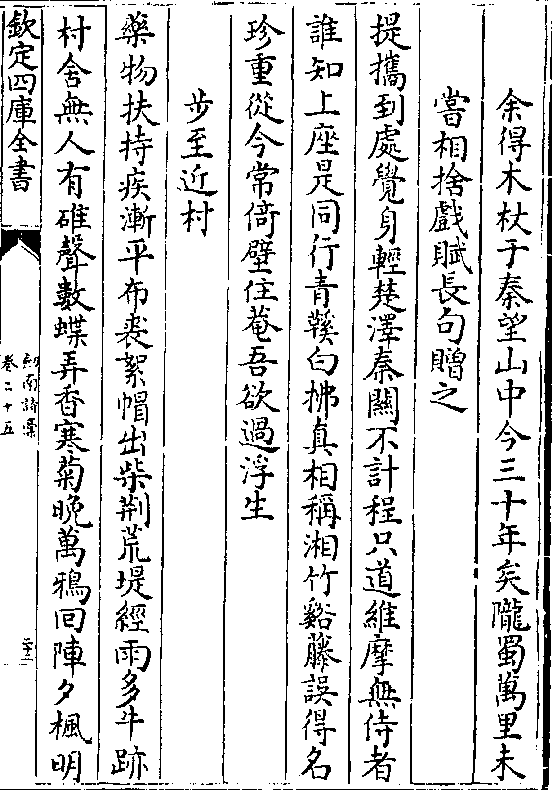 余得木杖于秦望山中今三十年矣隴蜀萬里未
嘗相捨戲賦長句贈之
提攜到處覺身輕楚澤秦關不計程只道維摩無侍者
誰知上座是同行青鞵白拂真相稱湘竹谿藤誤得名
珍重從今常倚壁住菴吾欲過浮生
步至近村
藥物扶持疾漸平布裘絮帽出柴荆荒堤經雨多牛跡
村舍無人有碓聲數蝶弄香寒菊晚萬鴉回陣夕楓明
欽定四庫全書
劍南詩稾
卷二十五